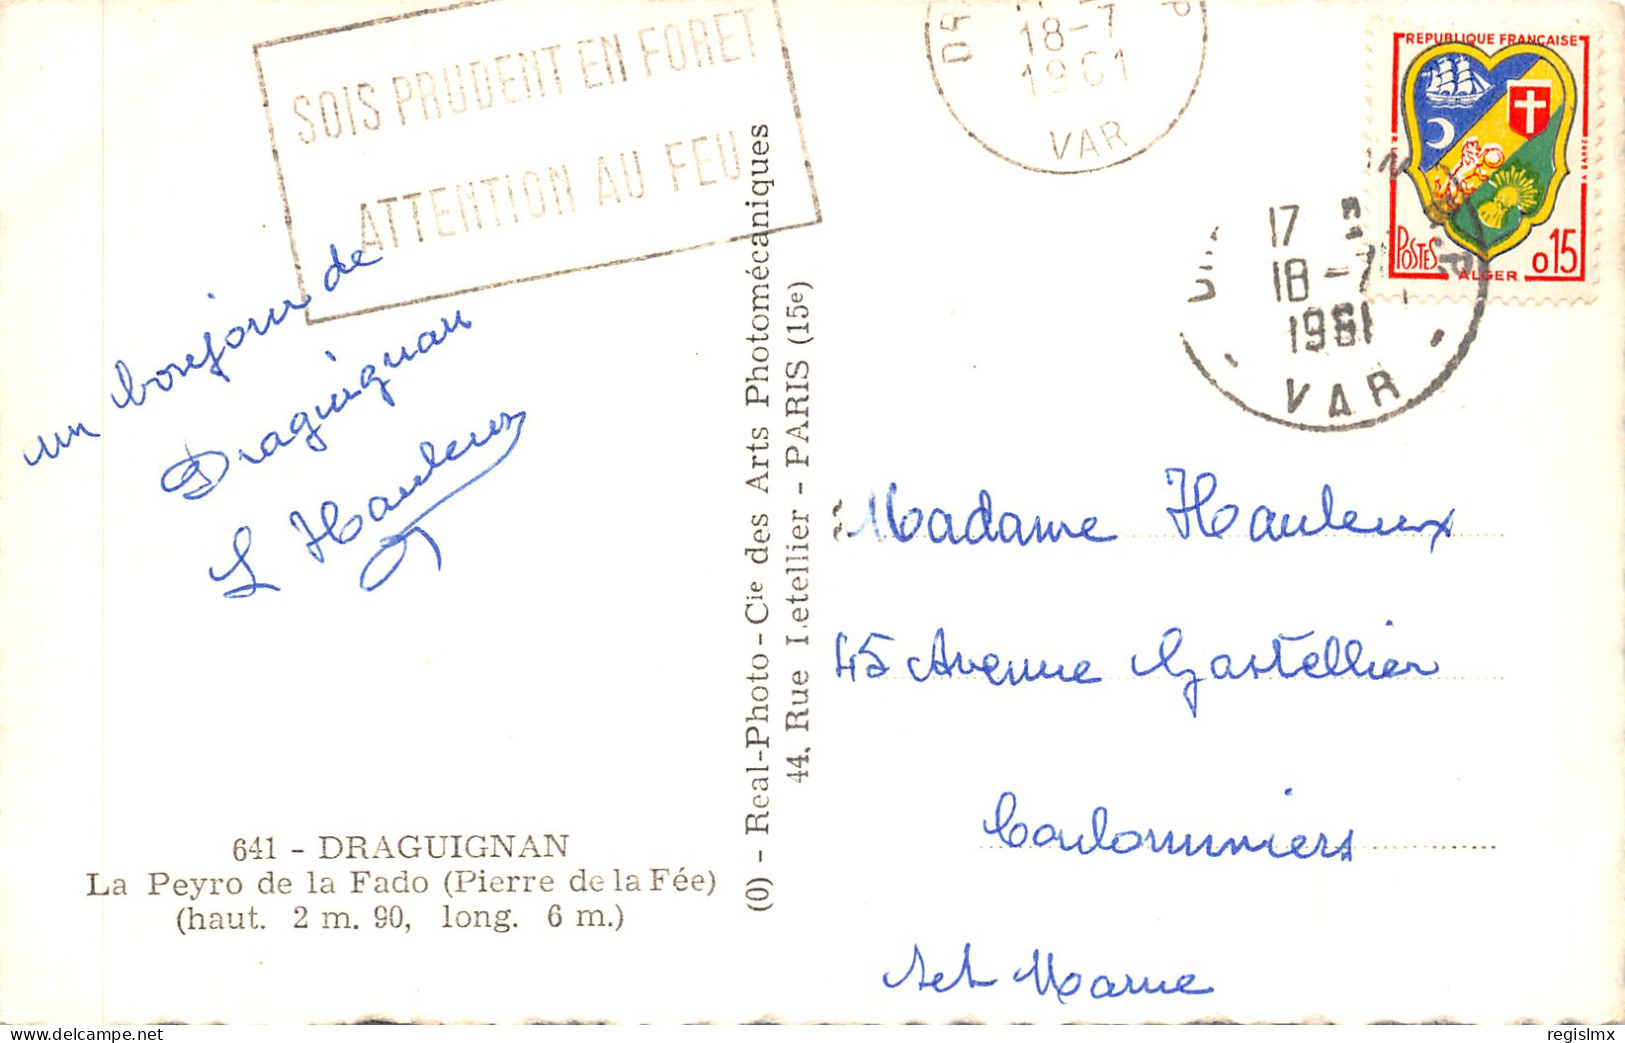 SOIS PRUDENT EN FORET
ATTENTION AU FEU
18-7
1961
VAR
REPUBLIQUE FRANÇAISE
POSTES
ALGER
0,15
17
18-7
1961
VAR
un bonjour de
Draguignan
L Hauleux
Madame Hauleux
45 Avenue Gastellier
Coulommiers
Set Marne
641 - DRAGUIGNAN
La Peyro de la Fado (Pierre de la Fée)
(haut. 2 m. 90, long. 6 m.)
(0) - Real-Photo - Cie des Arts Photomécaniques
44, Rue Letellier - PARIS (15e)
regislmx